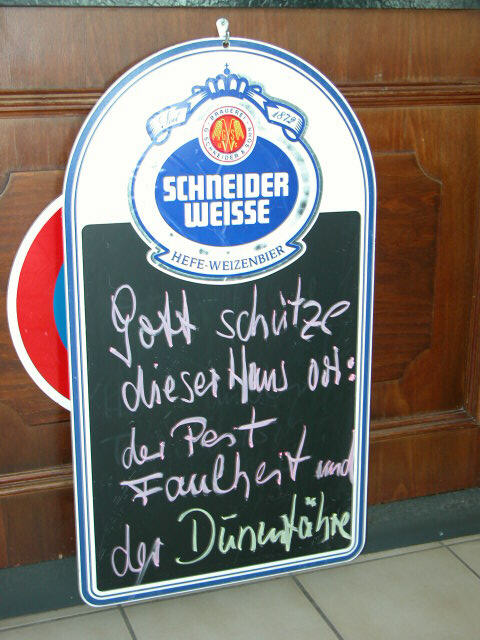 Seit 1872
BRAUEREI
G. SCHNEIDER & SOHN
SCHNEIDER
WEISSE
HEFE-WEIZENBIER
Gott schütze
dieser Haus vor:
der Pest
Faulheit und
der Dünenfähre